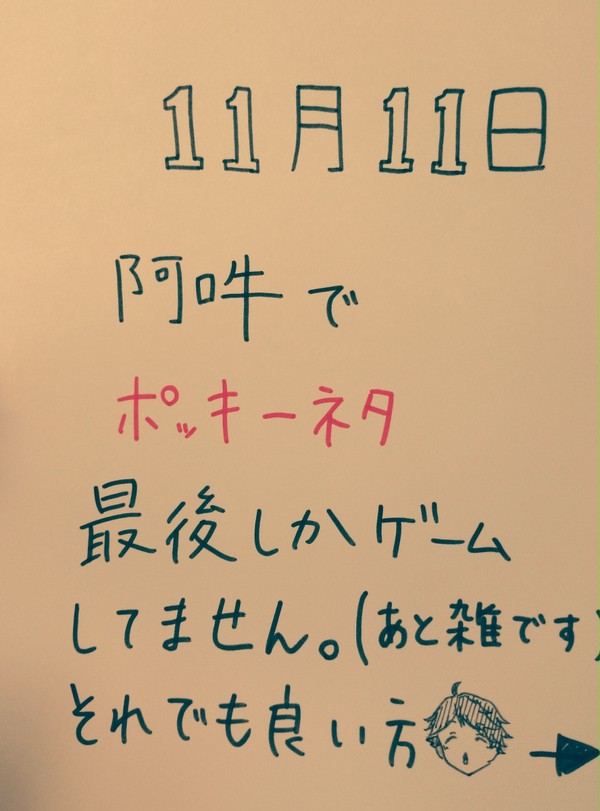 11月11日
阿吽で
ポッキーネタ
最後しかゲーム
してません。(あと雑です)
それでも良い方